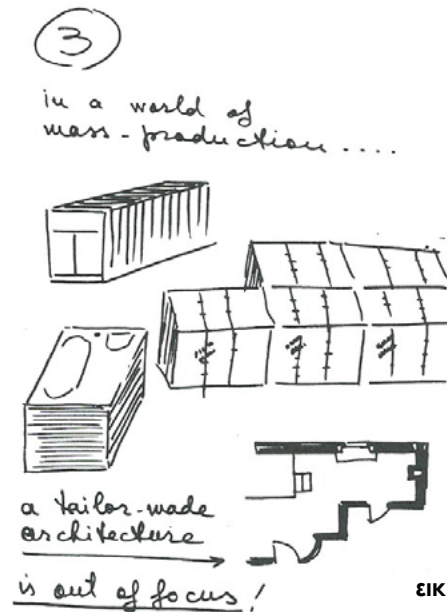 3
in a world of
mass-production....
a tailor-made
architecture
is out of focus!
εικ